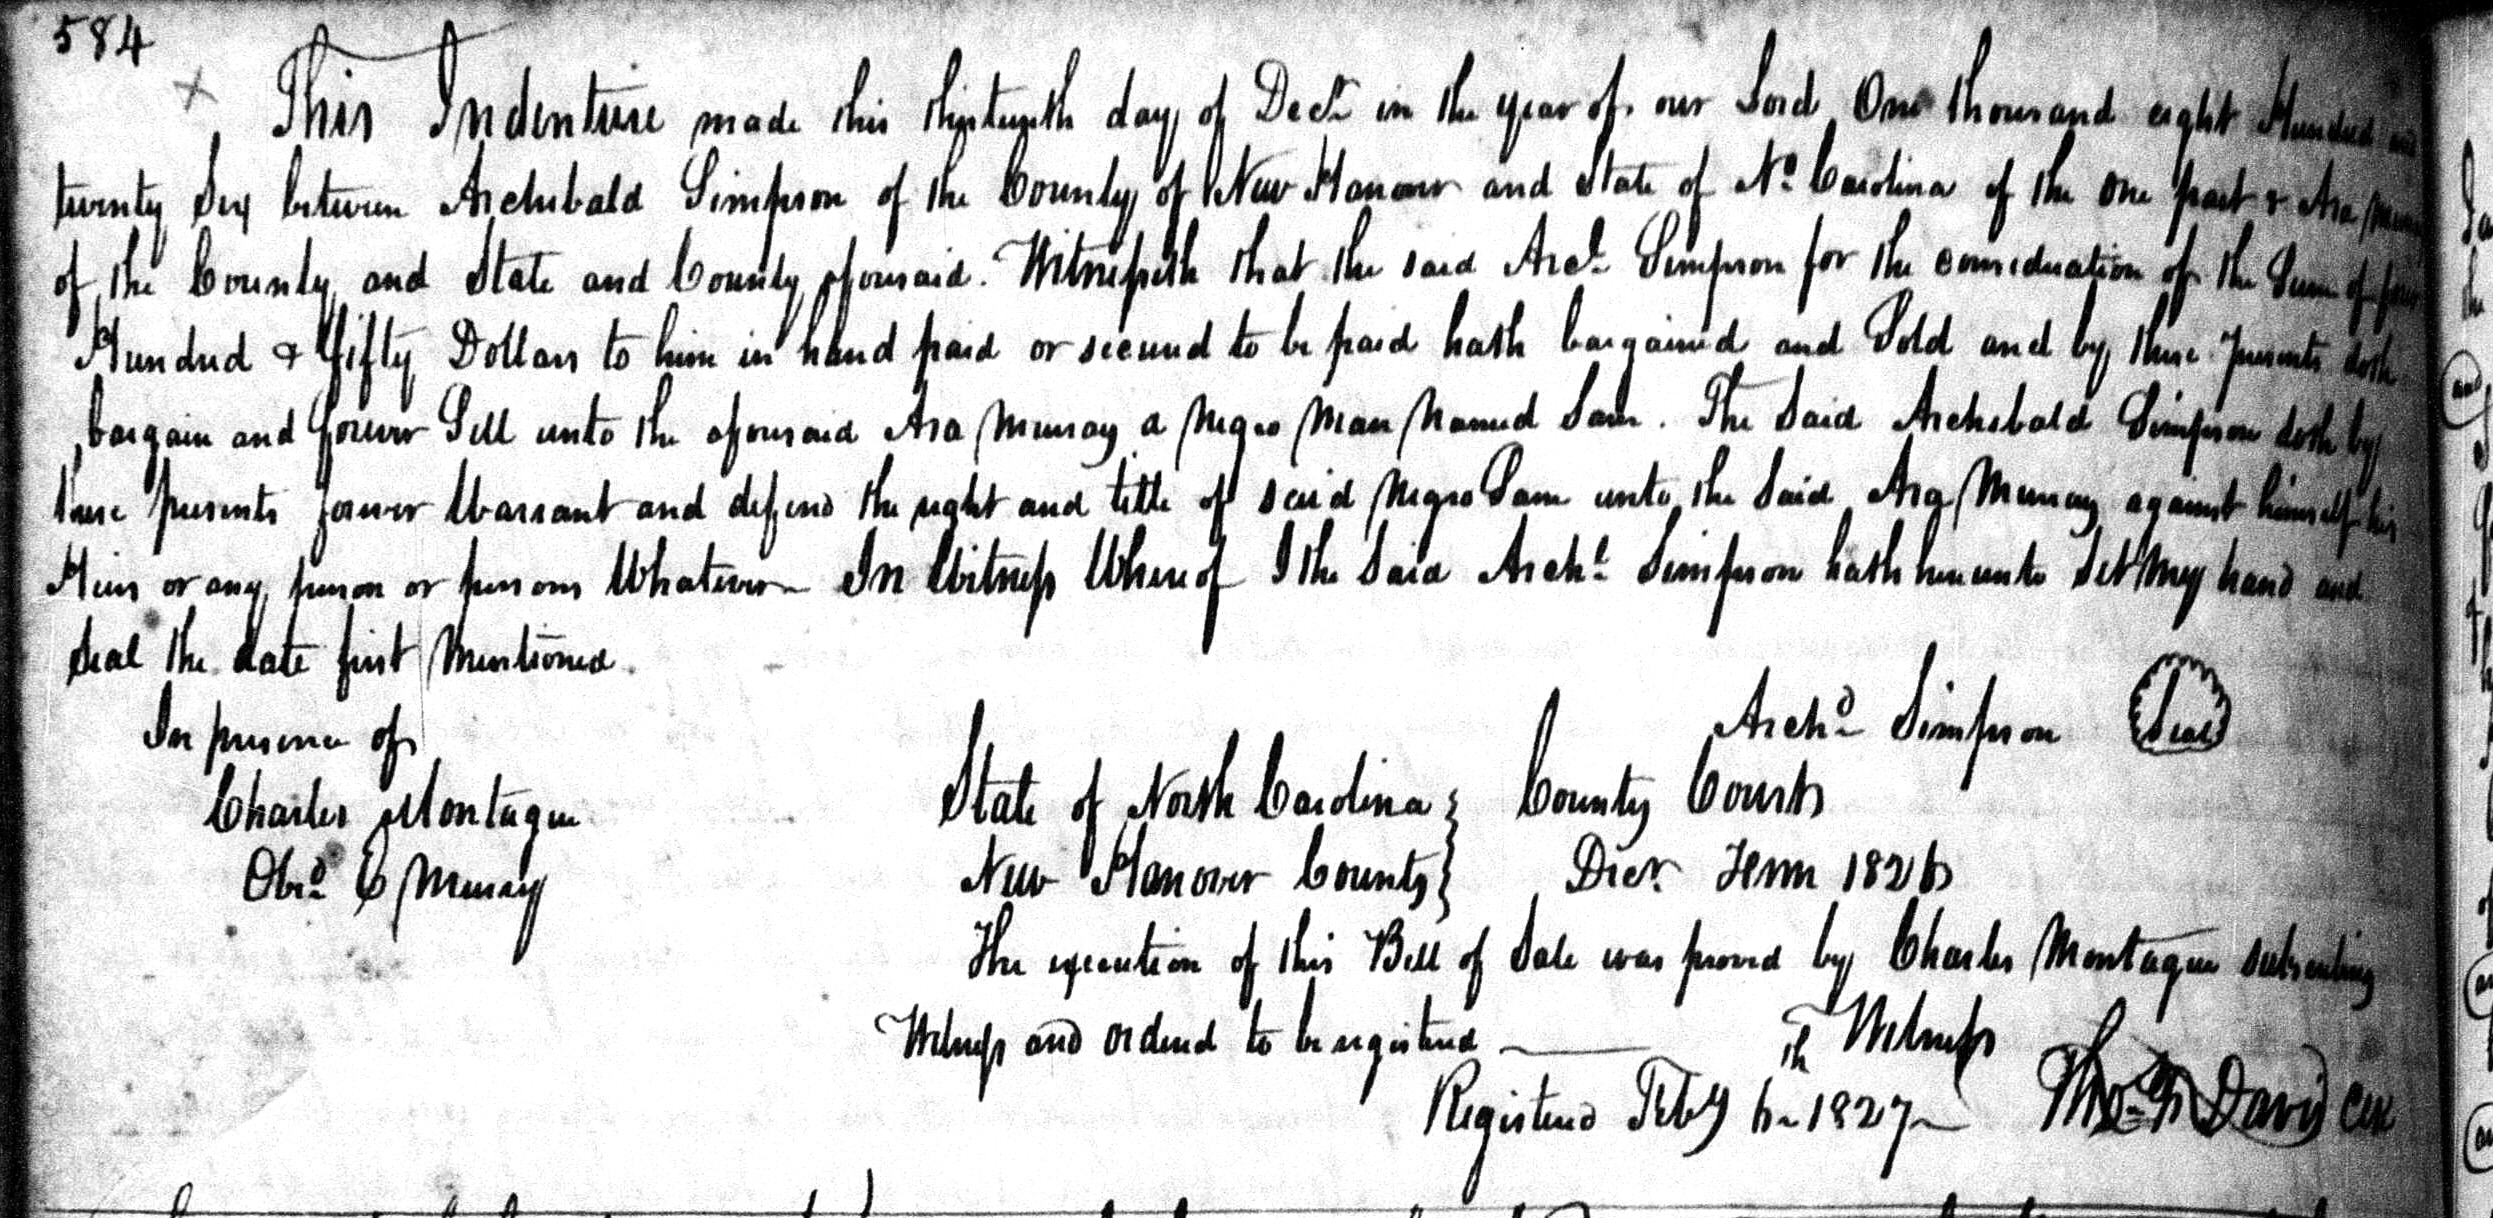 584
This Indenture made this thirteenth day of Decr in the year of our Lord One thousand eight Hundred and
twenty Six between Archibald Simpson of the County of New Hanover and State of No Carolina of the one part & Asa Murray
of the County and State and County aforesaid. Witnesseth that the said Archd Simpson for the consideration of the Sum of four
Hundred & fifty Dollars to him in hand paid or secured to be paid hath bargained and Sold and by these presents doth
bargain and forever Sell unto the aforesaid Asa Murray a Negro Man Named Sam. The Said Archibald Simpson doth by
these presents forever Warrant and defend the right and title of said Negro Sam unto the Said Asa Murray against himself his
Heirs or any person or persons Whatever In Witness Whereof I the Said Archd Simpson hath hereunto Set My hand and
Seal the date first Mentioned
Archd Simpson Seal
In presence of
Charles Montague
Obed C Murray
State of North Carolina } County Court
New Hanover County } Decr Term 1826
The execution of this Bill of Sale was proved by Charles Montague subscribing
Witness and ordered to be registered
Witness
Registered Feby 6th 1827 Tho. F Davis Clk